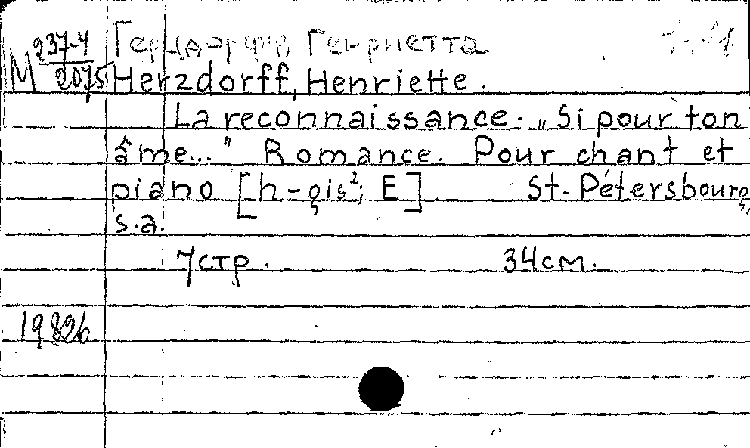 М 237-4/2075
Герцдорфф, Генриетта
Herzdorff, Henriette.
La reconnaissance. „Si pour ton
âme..." Romance. Pour chant et
piano [h-gis²; E]. St-Pétersbourg,
s.a.
7 стр. 34 см.
19826